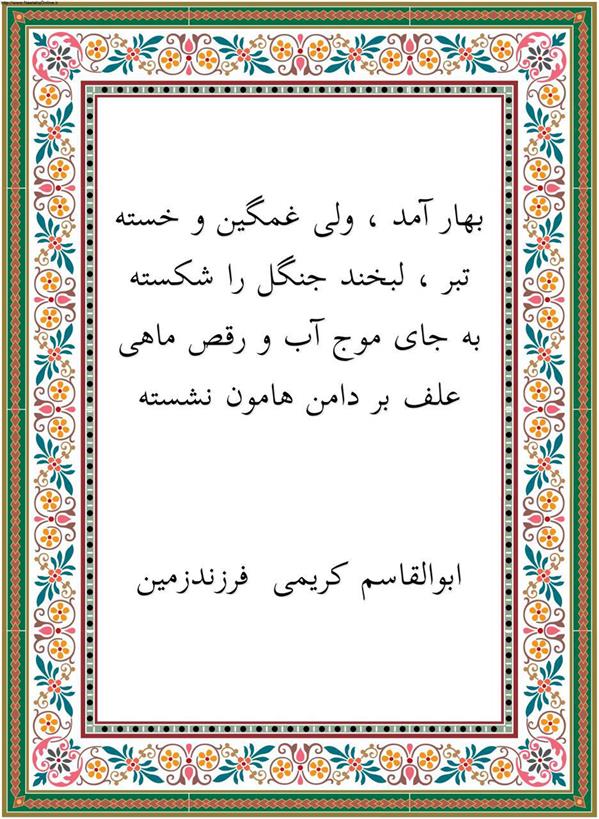 http://www.NashrieOnline.ir
بهار آمد ، ولی غمگین و خسته
تبر ، لبخند جنگل را شکسته
به جای موج آب و رقص ماهی
علف بر دامن هامون نشسته
ابوالقاسم کریمی فرزندزمین